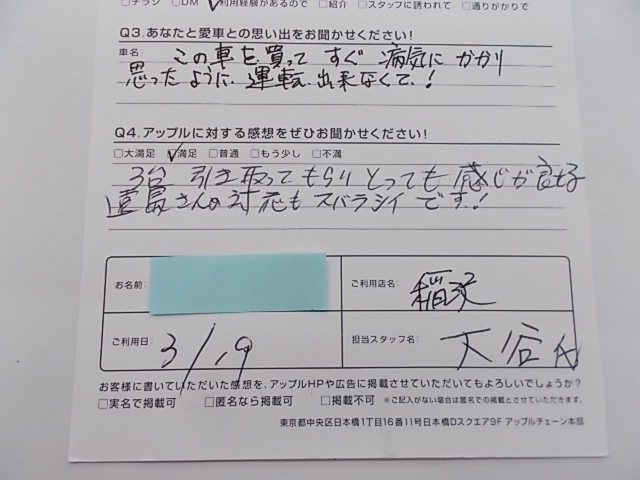 □チラシ □DM ☑利用経験があるので □紹介 □スタッフに誘われて □通りがかりで
Q3.あなたと愛車との思い出をお聞かせください!
車名: この車を買って すぐ 病気に かかり
思ったように 運転 出来なくて!
Q4.アップルに対する感想をぜひお聞かせください!
□大満足 ☑満足 □普通 □もう少し □不満
3台 引き取って もらい とっても 感じが 良好
さんの 対応も スバラシイ です!
お名前:
ご利用店名: 稲沢
ご利用日: 3/19
担当スタッフ名: 大谷氏
お客様に書いていただいた感想を、アップルHPや広告に掲載させていただいてもよろしいでしょうか?
□実名で掲載可 □匿名なら掲載可 □掲載不可 ※ご記入がない場合は匿名での掲載とさせていただきます。
東京都中央区日本橋1丁目16番11号日本橋Dスクエア9F アップルチェーン本部